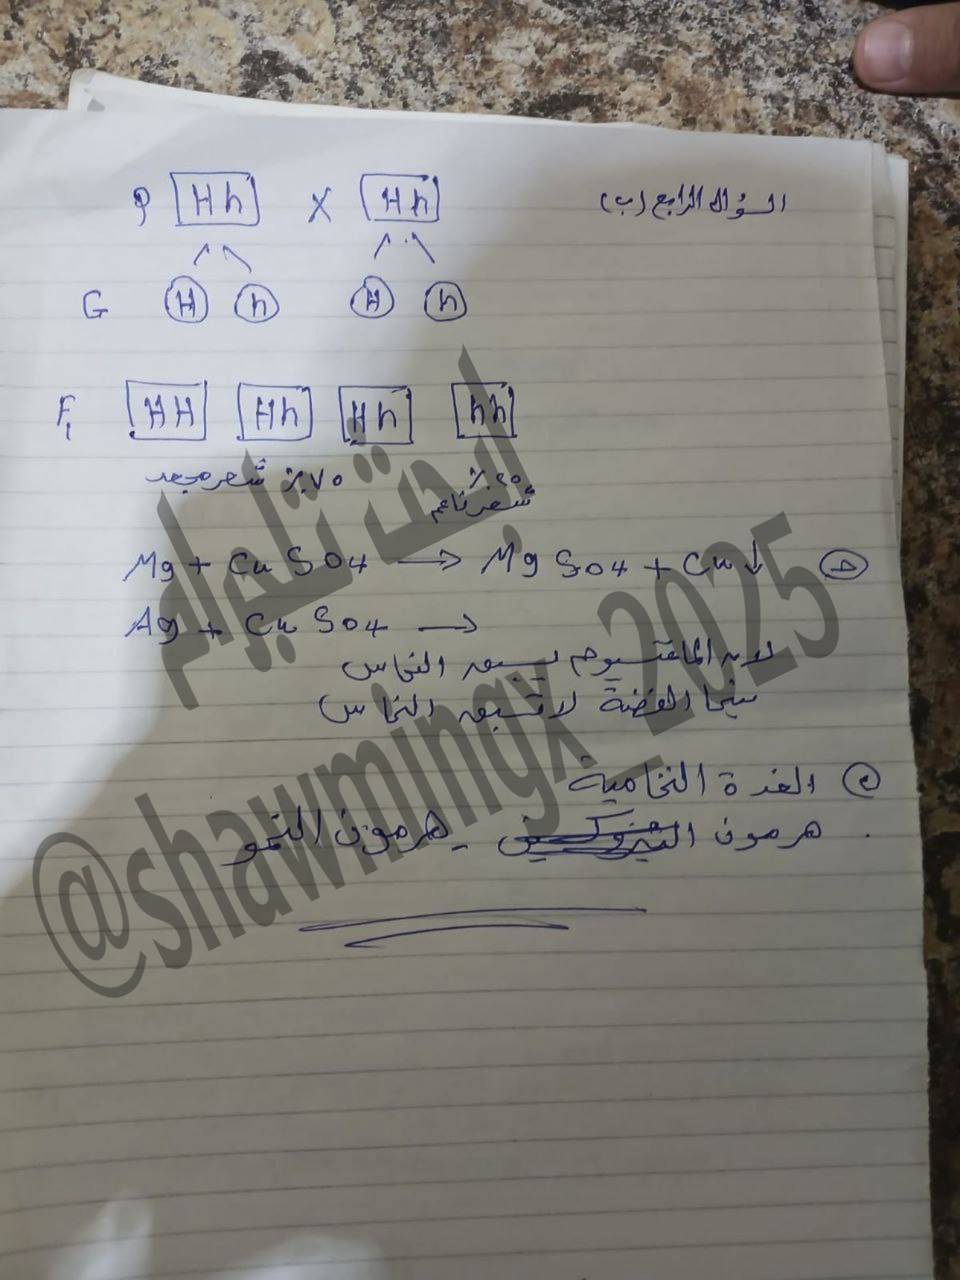 السؤال الرابع (ب)
P Hh X Hh
G H h H h
F1 HH Hh Hh hh
٧٥٪ شعر مجعد ٢٥٪
شعر ناعم
Mg + CuSO4 → MgSO4 + Cu↓
Ag + CuSO4 →
لان الماغنسيوم يسبق النحاس
بينما الفضة لا تسبق النحاس
الغدة النخامية
هرمون هرمون النمو
ابحث تليجرام
@shawmingx_2025